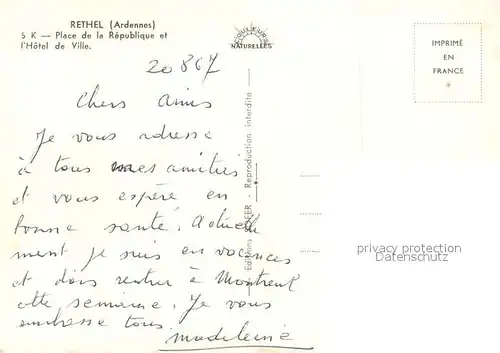 RETHEL (Ardennes)
5 K — Place de la République et
l'Hôtel de Ville.
COULEURS
NATURELLES
IMPRIMÉ
EN
FRANCE
20 8 67
Chers amis
Je vous adresse
à tous mes amitiés
et vous espère en
bonne santé. Actuelle
ment je suis en vacances
et dois rentrer à Montreuil
cette semaine. Je vous
embrasse tous
Madeleine
Reproduction interdite
Editions
privacy protection
Datenschutz